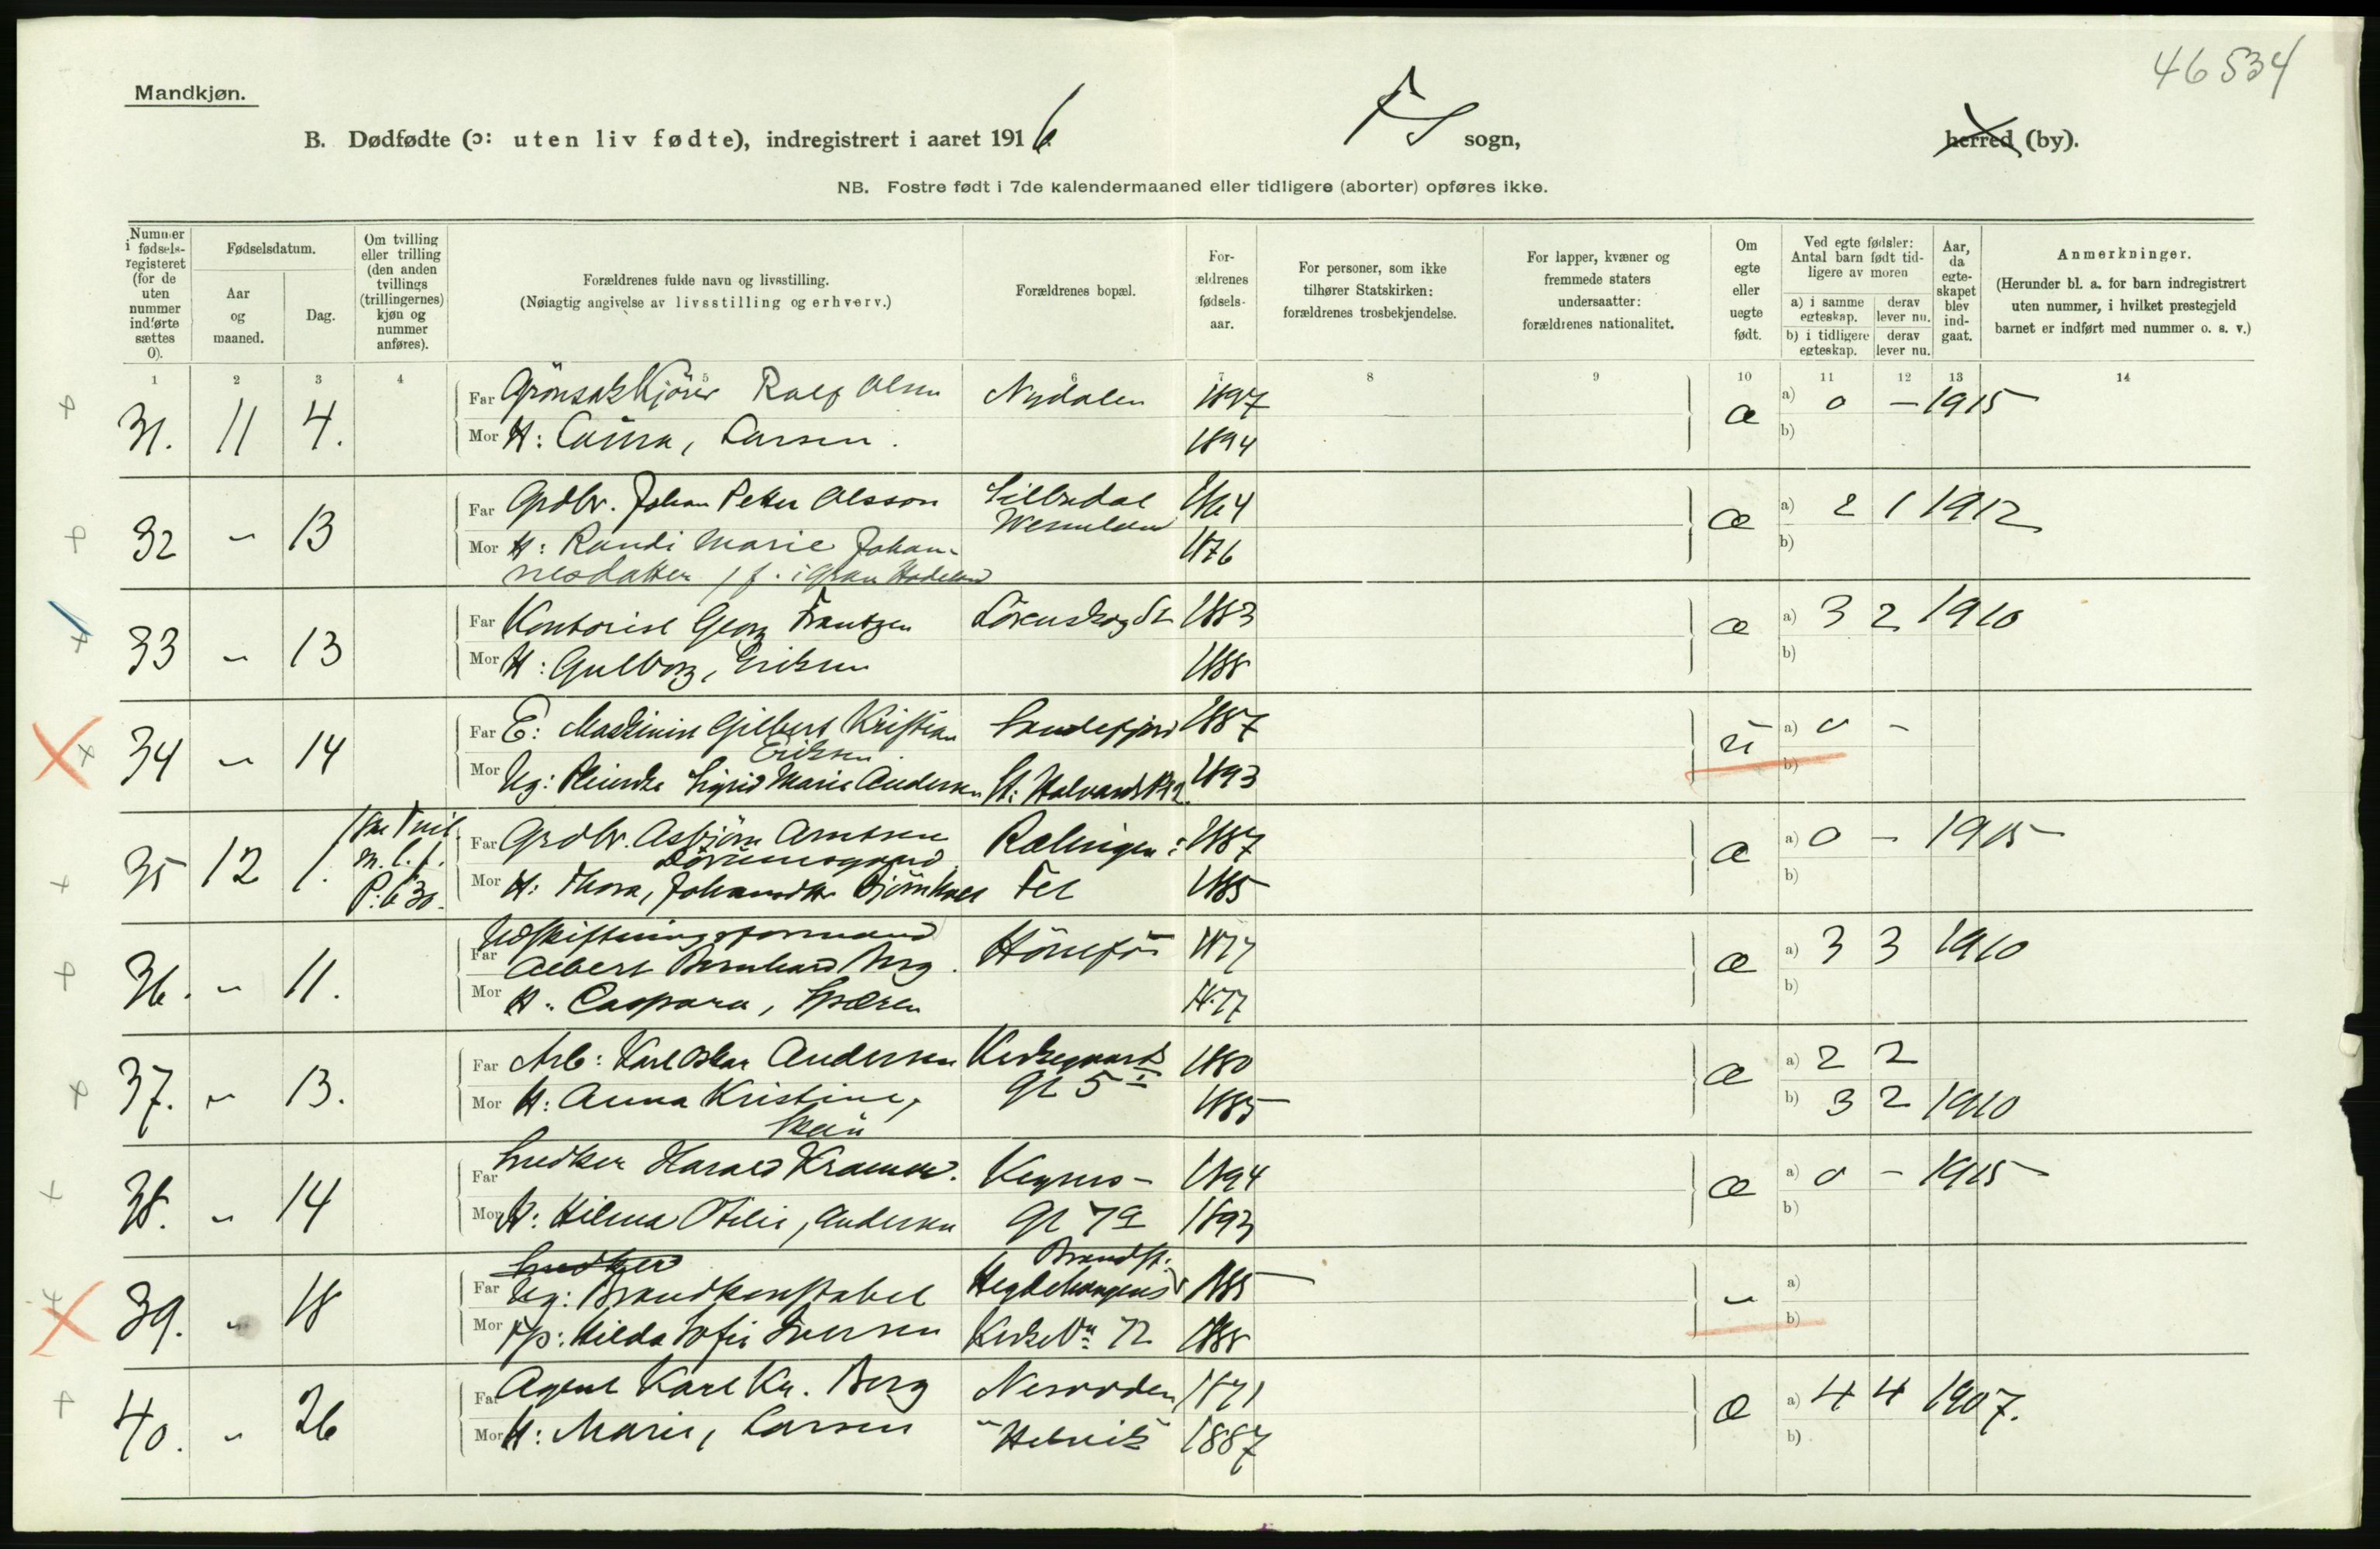 46534
Mandkjøn.
B. Dødfødte (ɔ: uten liv fødte), indregistrert i aaret 1916
FS sogn,
herred (by).
NB. Fostre født i 7de kalendermaaned eller tidligere (aborter) opføres ikke.
Nummer i fødsels-registeret (for de uten nummer indførte sættes 0).
Fødselsdatum.
Aar og maaned.
Dag.
Om tvilling eller trilling (den anden tvillings (trillingernes) kjøn og nummer anføres).
Forældrenes fulde navn og livsstilling.
(Nøiagtig angivelse av livsstilling og erhverv.)
Forældrenes bopæl.
For-ældrenes fødsels-aar.
For personer, som ikke tilhører Statskirken: forældrenes trosbekjendelse.
For lapper, kvæner og fremmede staters undersaatter: forældrenes nationalitet.
Om egte eller uegte født.
Ved egte fødsler: Antal barn født tid-ligere av moren
a) i samme egteskap. derav lever nu.
b) i tidligere egteskap. derav lever nu.
Aar, da egte-skapet blev ind-gaat.
Anmerkninger.
(Herunder bl. a. for barn indregistrert uten nummer, i hvilket prestegjeld barnet er indført med nummer o. s. v.)
1 2 3 4 5 6 7 8 9 10 11 12 13 14
31. 11 4. Far Rolf Olsen Nydalen 1897 æ a) 0 - 1915
Mor H: Larsen. 1894 b)
32 " 13 Far Grdbr. Johan Peter Olsson Lillesdal 1864 æ a) 2 1 1912
Wermland
Mor H: Randi Marie Johan- 1876 b)
nesdatter / f. i Gran Hadeland
33 " 13 Far Kontorist Georg Frantzen Lörenskog St 1883 æ a) 3 2 1910
Mor H: Gulborg, Eriksen 1888 b)
34 " 14 Far E: Maskinist Gilbert Kristian Sandefjord 1887 u a) 0 -
Eriksen
Mor Ug: Sigrid Marie Andersen St: Halvards Pl 2. 1893 b)
35 12 1. 1ste Tvil. m. l. f. P: 630. Far Grdbr. Asbjörn Arntsen Rælingen i 1887 æ a) 0 - 1915
Mor H: Thora, Johansdtr Fet 1885 b)
36. " 11. Udskiftningsformand
Far Albert Bernhard Berg. Hönefos 1877 æ a) 3 3 1910
Mor H: Caspara, 1877 b)
37. " 13. Far Arb: Karl Oskar Andersen Kirkegaards 1880 æ a) 2 2
Mor H: Anna Kristine, gt 5 I 1885 b) 3 2 1910
38. " 14 Far Snedker Harald Kramer. Keysers- 1894 æ a) 0 - 1915
Mor H: Hilma Otilie, Andersen gt 7a 1893 b)
39. " 18 Snedker Brandst.
Far Ug: Brandkonstabel Hegdehaugens 1885 " a)
Mor Tjp: Hilda Sofie Iversen Kirkevn 72 1888 b)
40. " 26 Far Agent Karl Kr. Berg Nesodden 1871 æ a) 4 4 1907.
Mor H: Marie, Larsen "Helvik" 1887 b)